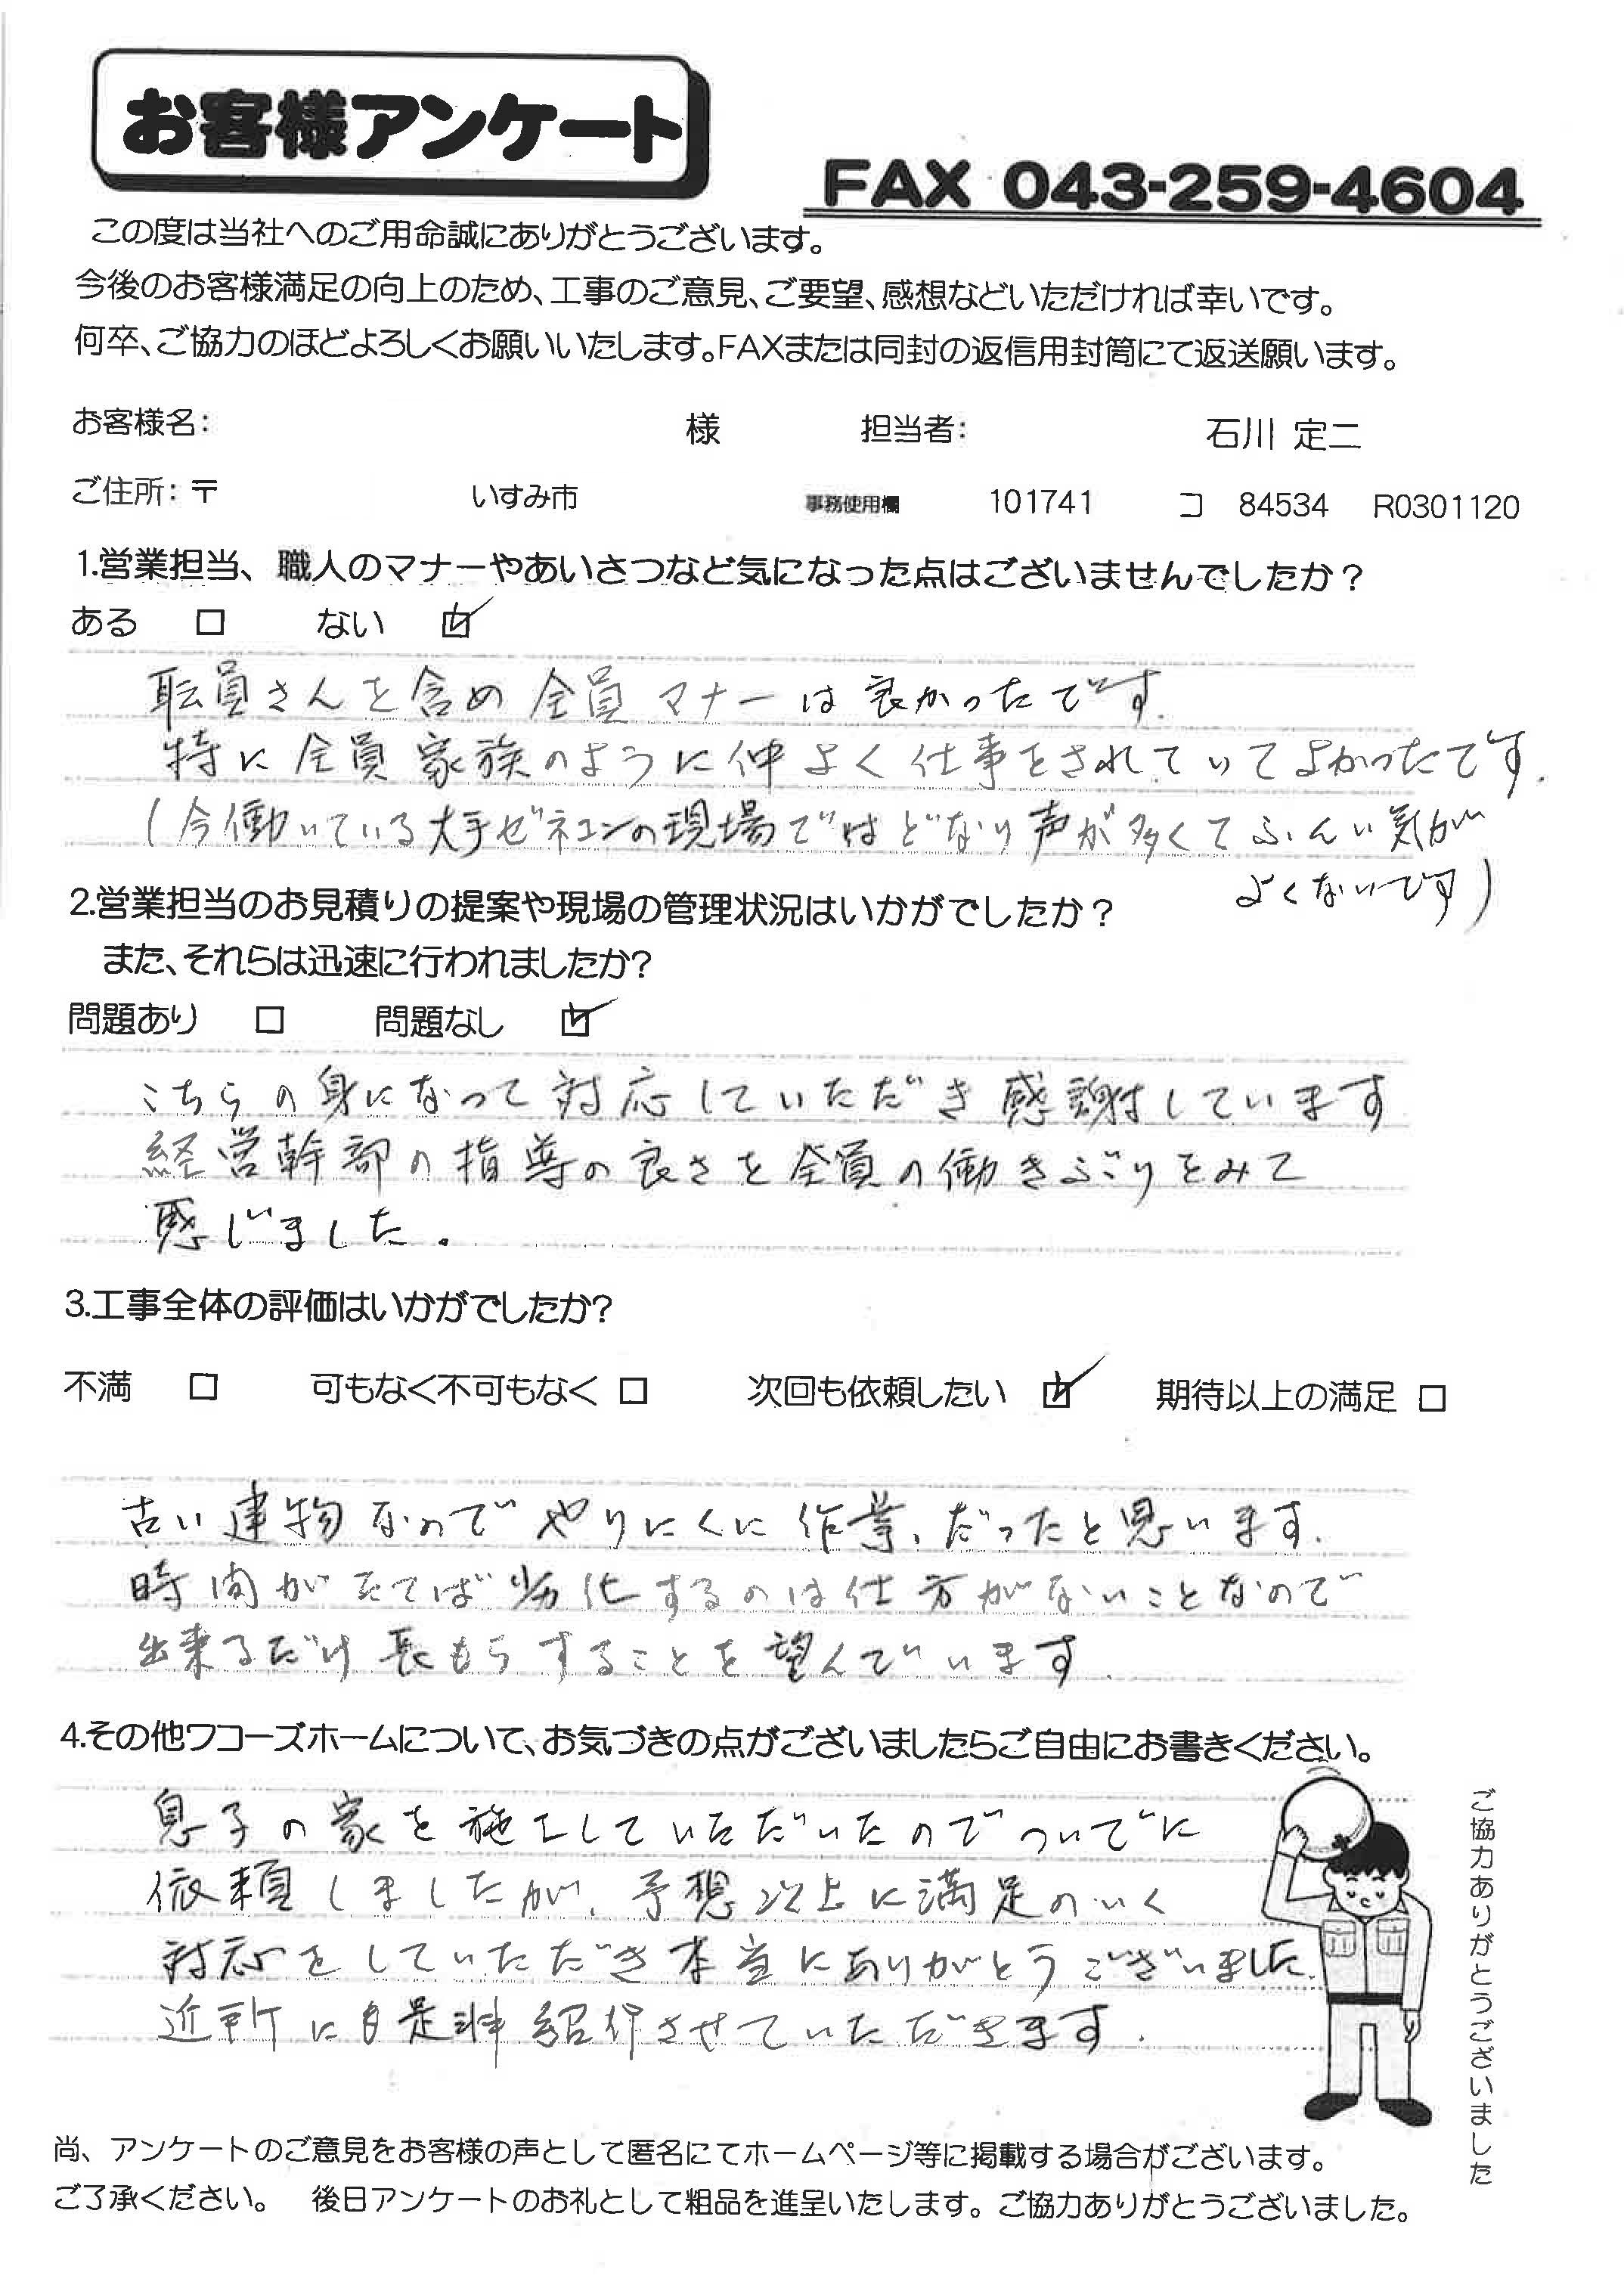 お客様アンケート
FAX 043-259-4604
この度は当社へのご用命誠にありがとうございます。
今後のお客様満足の向上のため、工事のご意見、ご要望、感想などいただければ幸いです。
何卒、ご協力のほどよろしくお願いいたします。FAXまたは同封の返信用封筒にて返送願います。
お客様名: 様 担当者: 石川 定二
ご住所:〒 いすみ市 事務使用欄 101741 コ 84534 R0301120
1.営業担当、職人のマナーやあいさつなど気になった点はございませんでしたか？
ある □ ない ☑
職員さんを含め全員マナーは良かったです.
特に全員家族のように仲よく仕事をされていてよかったです.
(今働いている大手ゼネコンの現場ではどなり声が多くてふんい気が
よくないです)
2.営業担当のお見積りの提案や現場の管理状況はいかがでしたか？
また、それらは迅速に行われましたか?
問題あり □ 問題なし ☑
こちらの身になって対応していただき感謝しています
経営幹部の指導の良さを全員の働きぶりをみて
感じました。
3.工事全体の評価はいかがでしたか?
不満 □ 可もなく不可もなく □ 次回も依頼したい ☑ 期待以上の満足 □
古い建物なのでやりにくに作業、だったと思います.
時間がたてば劣化するのは仕方がないことなので
出来るだけ長もちすることを望んでいます.
4.その他ワコーズホームについて、お気づきの点がございましたらご自由にお書きください。
息子の家を施工していただいたのでついでに
依頼しましたが、予想以上に満足のいく
対応をしていただき本当にありがとうございました.
近所に是非紹介させていただきます.
ご協力ありがとうございました
尚、アンケートのご意見をお客様の声として匿名にてホームページ等に掲載する場合がございます。
ご了承ください。 後日アンケートのお礼として粗品を進呈いたします。ご協力ありがとうございました。